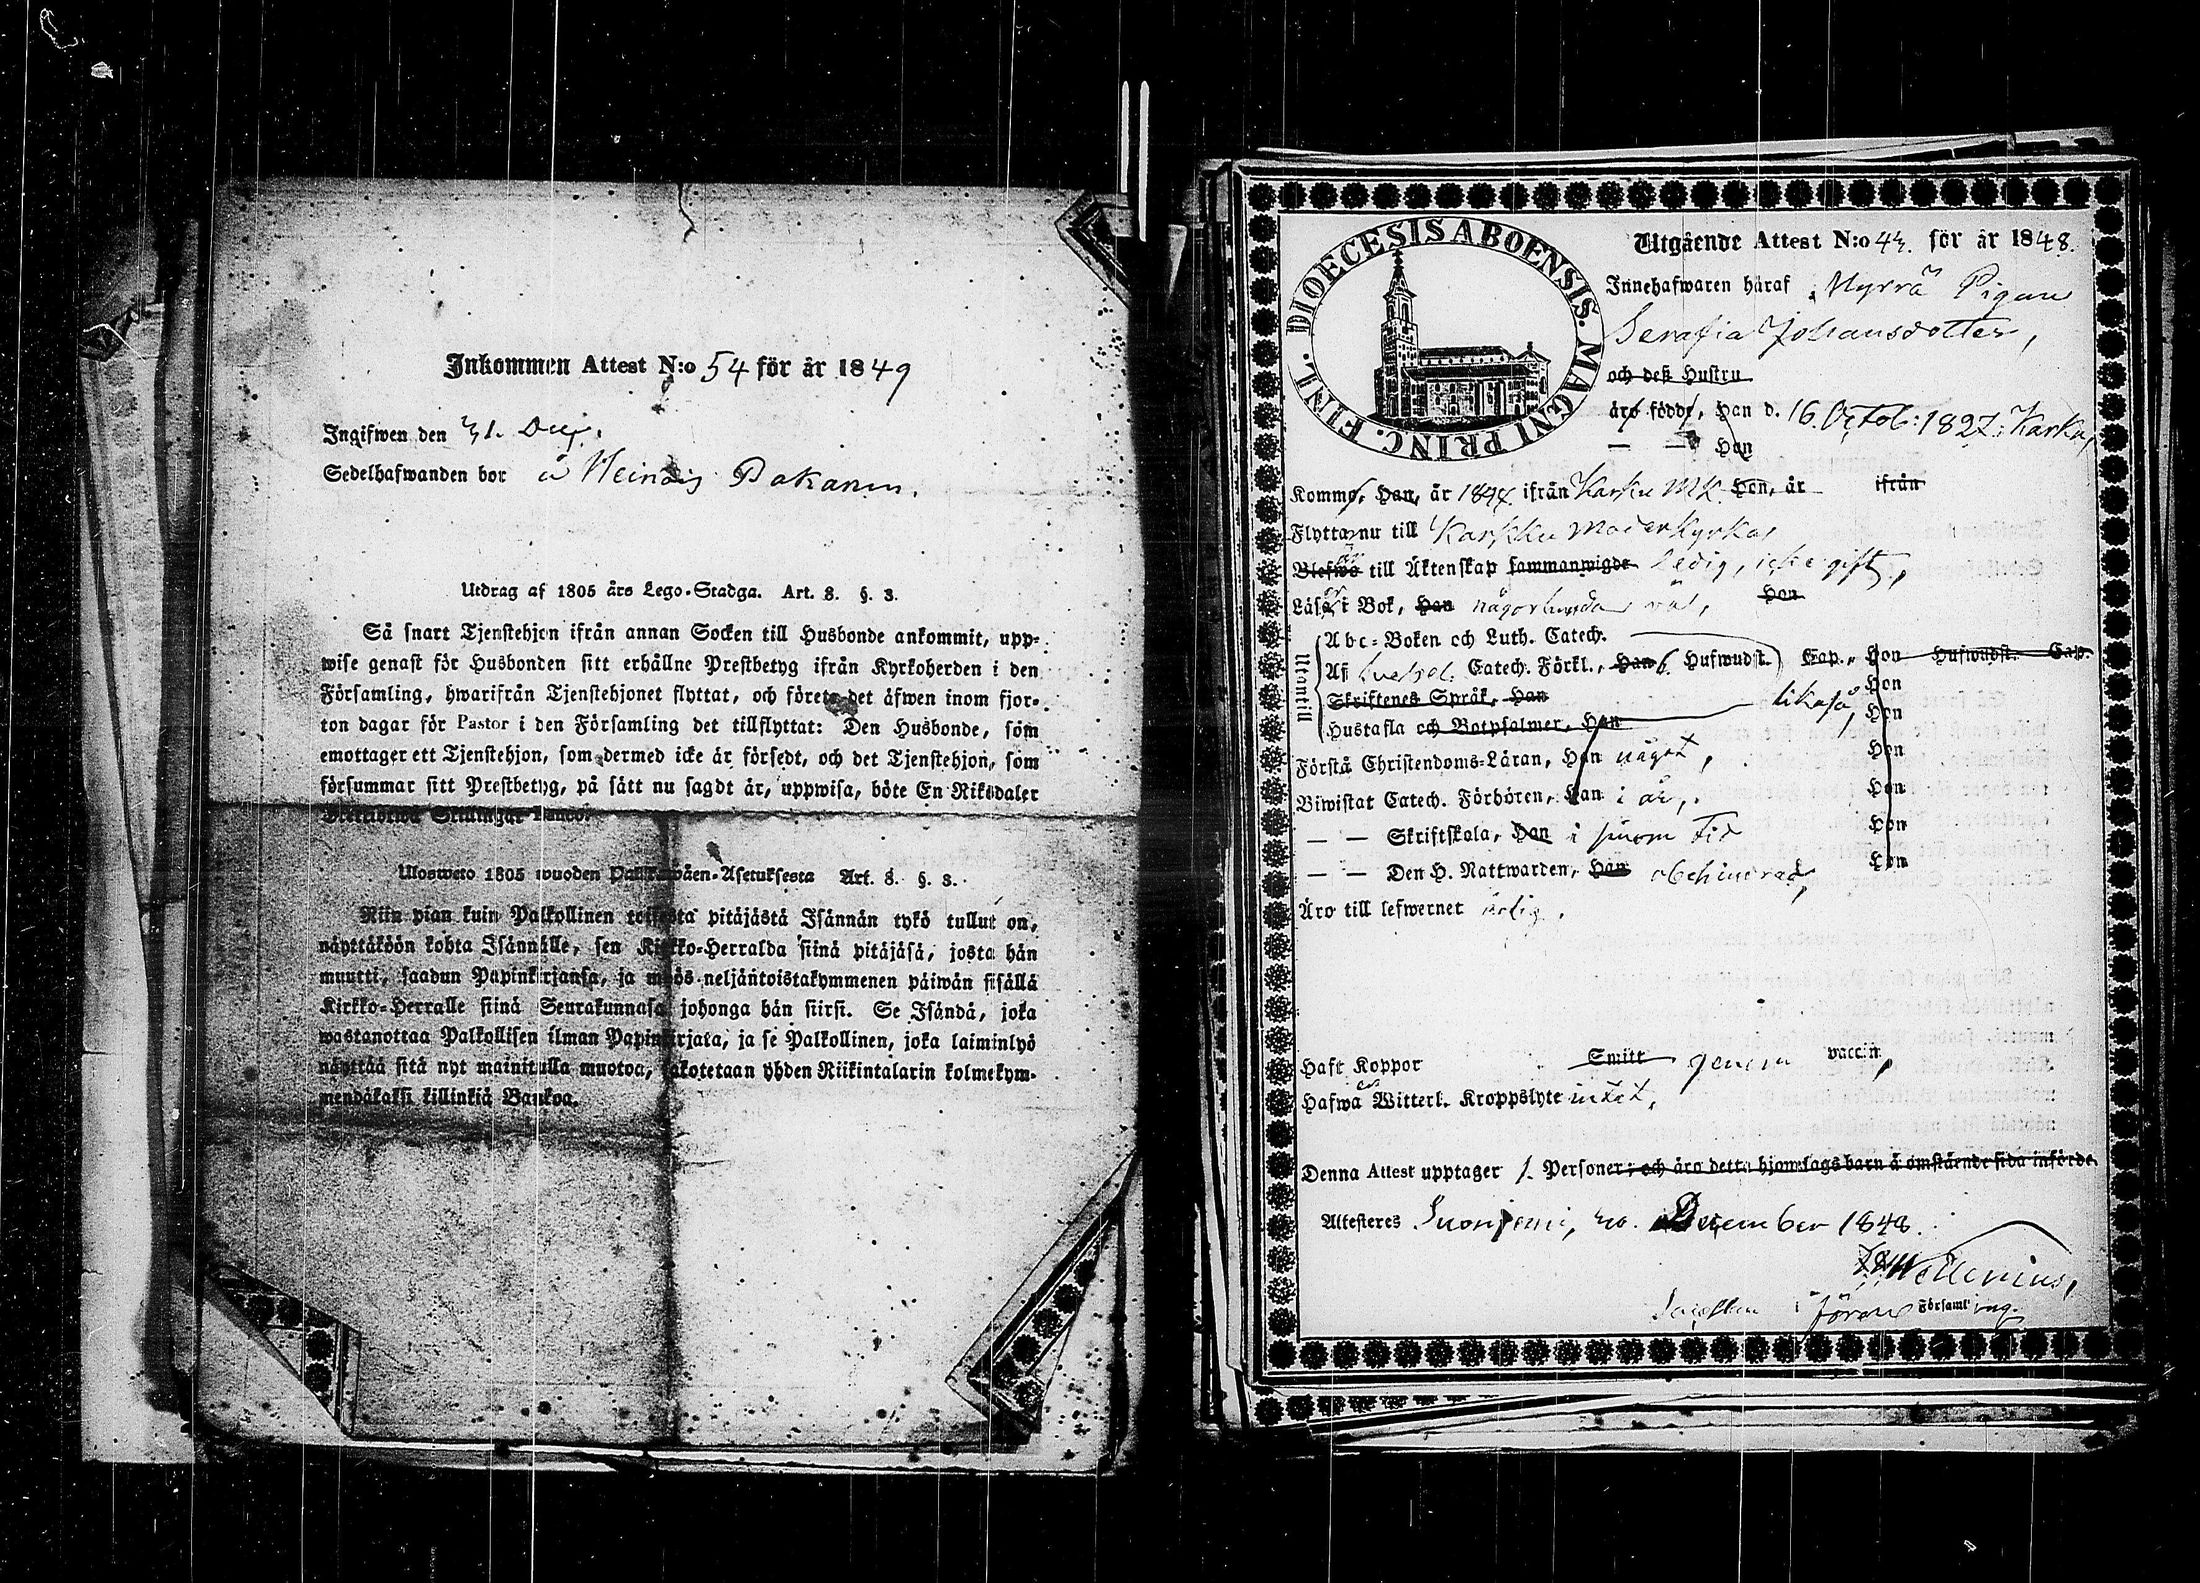 Inkommen Attest N:o 54 för år 1849
Ingifwen den 31. Dec.
Sedelhafwanden bor å Heinois Pakarin.
Utdrag af 1805 års Lego-Stadga. Art. 8. §. 3.
Så snart Tjenstehjon ifrån annan Socken till Husbonde ankommit, upp-
wise genast för Husbonden sitt erhållne Prestbetyg ifrån Kyrkoherden i den
Församling, hwarifrån Tjenstehjonet flyttat, och förete det äfwen inom fjor-
ton dagar för Pastor i den Församling det tillflyttat: Den Husbonde, som
emottager ett Tjenstehjon, som dermed icke är försedt, och det Tjenstehjon, som
försummar sitt Prestbetyg, på sätt nu sagdt är, uppwisa, böte En Riksdaler
Skillingar Banco.
Ulosweto 1805 wuoden Palkkawäen-Asetuksesta Art. 8. §. 3.
Niin pian kuin Palkollinen toisesta pitäjästä Isännän tykö tullut on,
näyttäköön kohta Isännälle, sen Kirkko-Herralda siinä pitäjäsä, josta hän
muutti, saadun Papinkirjansa, ja myös neljäntoistakymmenen päiwän sisällä
Kirkko-Herralle siinä Seurakunnasa johonga hän siirsi. Se Isändä, joka
wastanottaa Palkollisen ilman Papinkirjata, ja se Palkollinen, joka laiminlyö
näyttää sitä nyt mainitulla muotoa, sakotetaan yhden Riikintalarin kolmekym-
mendäkaksi killinkiä Bankoa.
DIOECESIS ABOENSIS. MAGNI PRINC. FINL.
Utgående Attest N:o 43. för år 1848.
Innehafwaren häraf, Myrrä Pigan
Serafia Johansdotter,
och deß Hustru
äro födde, Han d. 16. Octob: 1827. Karku,
— — Hon
Komme, Han, år 1847. ifrån Karku MK. Hon, år ifrån
Flytta nu till Karkku moderkyrka,
Blefwo är till Äktenskap sammanwigde ledig, icke gift,
Läsa i Bok, Han någorlunda väl, Hon
Utantill
Abc-Boken och Luth. Catech.
Af Svebel. Catech. Förkl., Han 6. Hufwudst. Cap., Hon Hufwudst. Cap.
Skriftenes Språk, Han Hon
Hustafla och Botpsalmer, Han likaså, Hon
Förstå Christendoms-Läran, Han något, Hon
Biwistat Catech. Förhören, Han i år, Hon
— — Skriftskola, Han i sinom tid Hon
— — Den H. Nattwarden, Han obehindrad, Hon
Äro till lefwernet ärlig.
Haft Koppor Smitt genom vaccin,
Hafwa Witterl. Kroppslyte intet,
Denna Attest upptager 1. Personer; och äro detta hjonelags barn å omstående sida införde.
Attesteres Suoniemi, 30. December 1848.
Wellenius,
Sacellan i förene Församling.